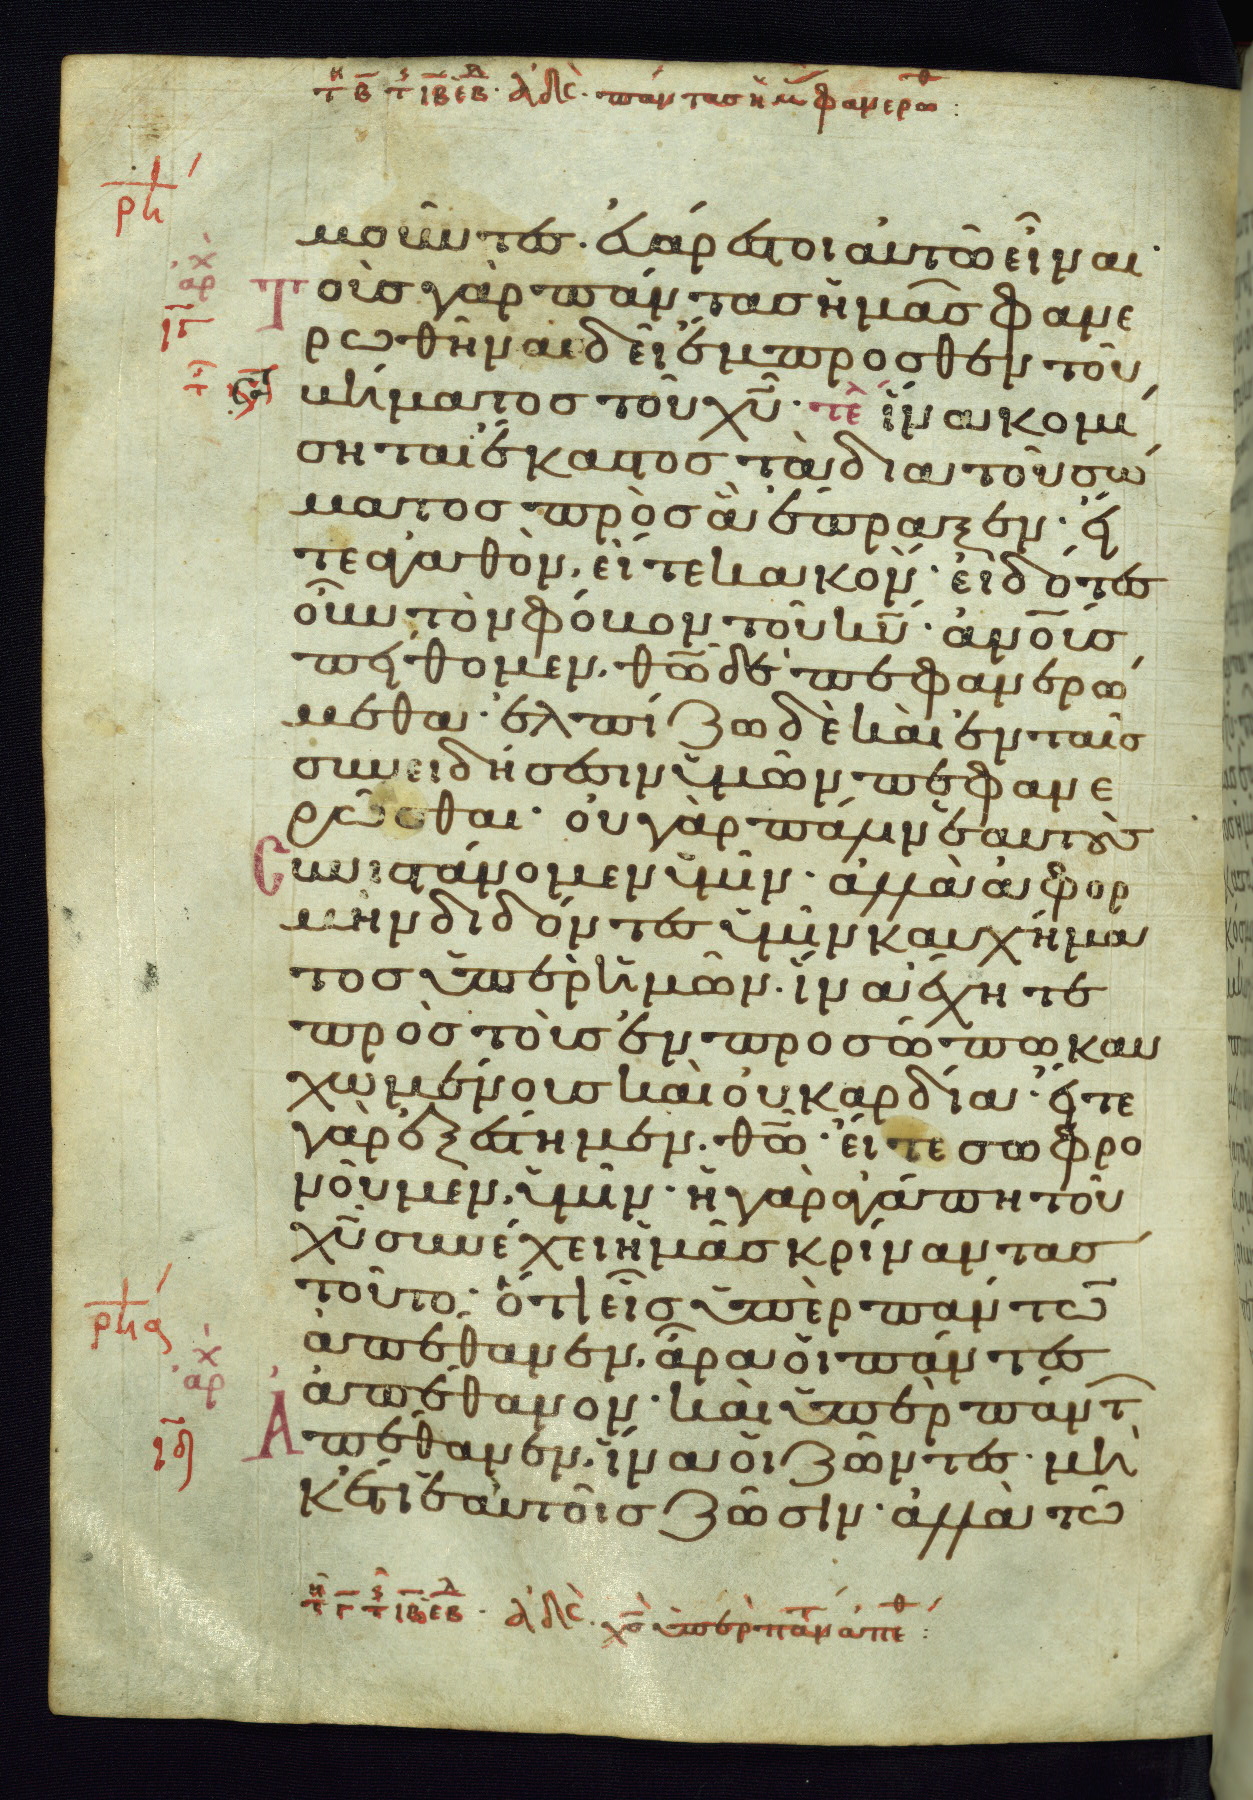 τῇ β τ ιβ εβ. ἀδε. πάντας ἡμ φανερω:
ρκ
ἀρχ
ιγ
μοῦντες. εὐάρεστοι αὐτῶ εἶναι·
Τοὺς γὰρ πάντας ἡμᾶς φανε
ρωθῆναι δεῖ ἔμπροσθεν τοῦ
βήματος τοῦ χυ̅· τε ἵνα κομί
σηται ἕκαστος τὰ διὰ τοῦ σώ
ματος πρὸς ἃ ἔπραξεν· εἴ
τε ἀγαθὸν. εἴτε κακόν· εἰδότες
οὖν τὸν φόβον τοῦ κυ̅· ἀνο̅υς
πείθομεν. θω̅ δὲ πεφανερώ
μεθα· ἐλπίζω δὲ καὶ ἐν ταῖς
συνειδήσεσιν ὑμῶν πεφανε
ρῶσθαι· οὐ γὰρ πάλιν ἑαυτοὺς
συνιστάνομεν ὑμῖν· ἀλλὰ ἀφορ
μὴν διδόντες ὑμῖν καυχήμα
τος ὑπὲρ ἡμῶν. ἵνα ἔχητε
πρὸς τοὺς ἐν προσώπω καυ
χωμένους καὶ οὐ καρδία· εἴτε
γὰρ ἐξέστημεν. θω̅· εἴτε σωφρο
νοῦμεν. ὑμῖν· ἡ γὰρ ἀγάπη τοῦ
χυ̅ συνέχει ἡμᾶς κρίναντας
τοῦτο· ὅτι εἷς ὑπὲρ πάντω̅
ἀπέθανεν. ἄρα οἱ πάντες
ἀπέθανον· καὶ ὑπὲρ πάντ
Ἀπέθανεν. ἵνα οἱ ζῶντες· μὴ
κέτι ἑαυτοῖς ζῶσιν· ἀλλὰ τῶ
ρκα
ἀρχ
ιδ
τῇ γ τ ιβ εβ. ἀδε. χς̅ ὑπὲρ πάντ ἀπέθ: